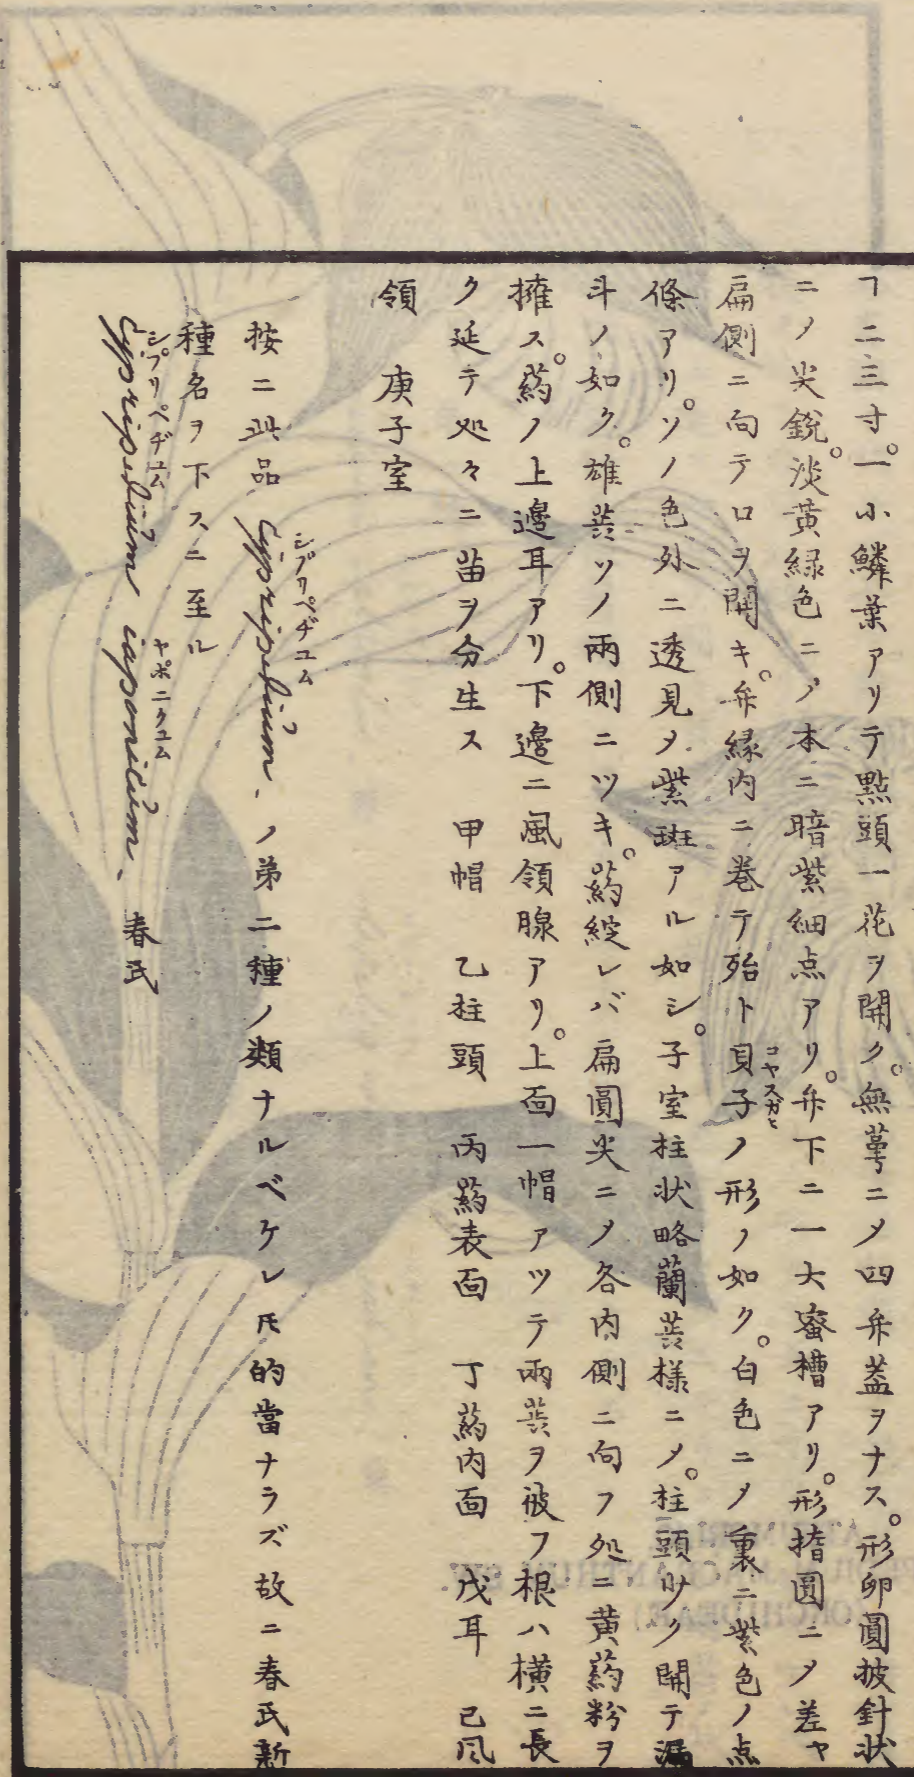 ヿ二三寸。一小鱗葉アリテ點頭一花ヲ開ク。無萼ニメ四弁蓋ヲナス。形卵圓披針状
ニノ尖銳。淡黄緑色ニノ本ニ暗紫細点アリ。弁下ニ一大蜜槽アリ。形撱圓ニメ差ヤ
扁側ニ向テ口ヲ開キ。弁緣内ニ巻テ殆ト貝子コヤスガヒノ形ノ如ク。白色ニメ裏ニ紫色ノ点
條アリ。ソノ色外ニ透見メ紫斑アル如シ。子室柱状略蘭蕋様ニメ。柱頭少ク開テ漏
斗ノ如ク。雄蕋ソノ兩側ニツキ。葯綻レバ扁圓尖ニメ各内側ニ向フ処ニ黄葯粉ヲ
擁ス。葯ノ上邊耳アリ。下邊ニ風領腺アリ。上面一帽アツテ兩蕋ヲ被フ根ハ横ニ長
ク延テ処々ニ苗ヲ分生ス　甲帽　乙柱頭　丙葯表面　丁葯内面　戊耳　己風
領　庚子室
按ニ此品 Cypripedium. シプリペヂユム ノ第二種ノ類ナルベケレ𪜈的當ナラズ故ニ春氏新
種名ヲ下スニ至ル
シプリペヂユム　ヤポニクユム
Cypripedium iaponicum. 春氏